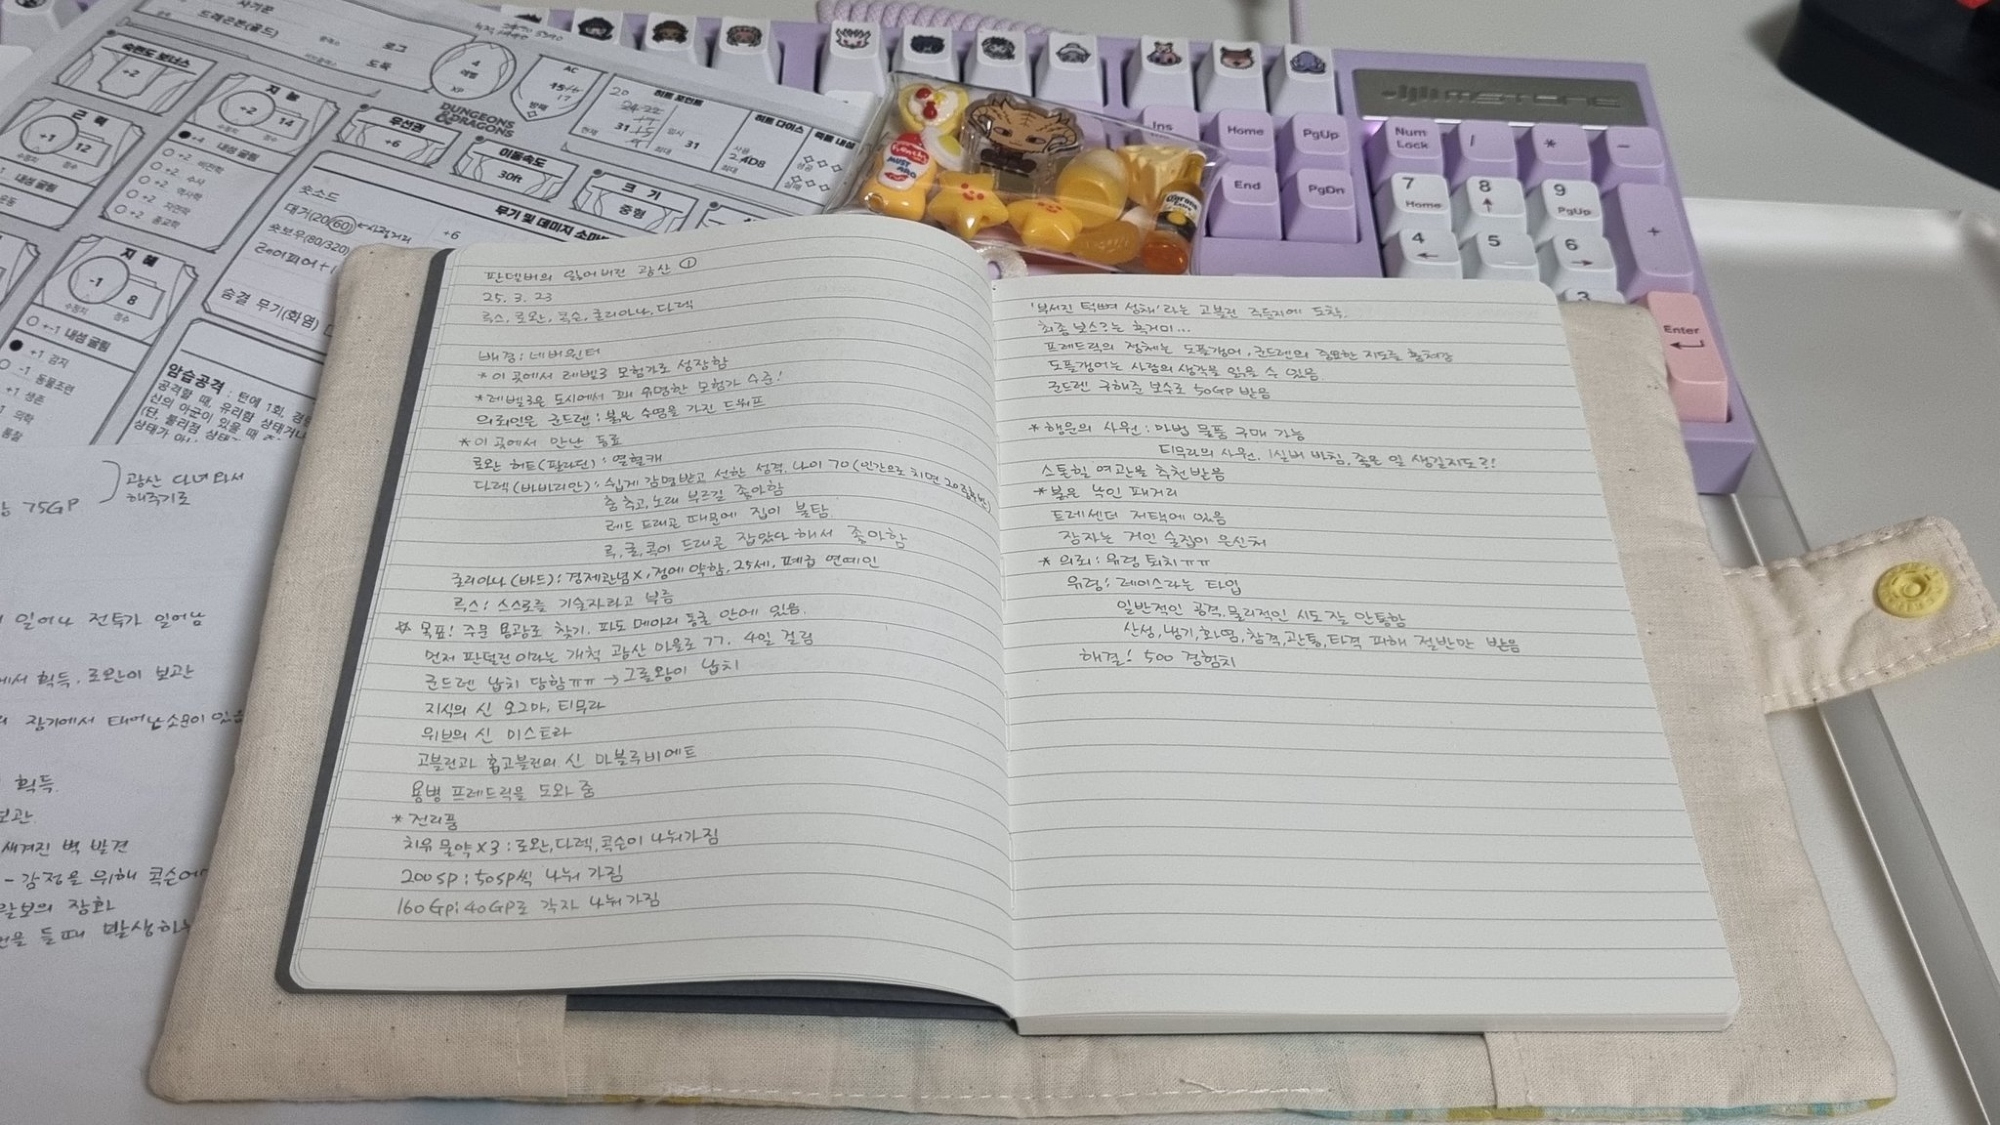 사기꾼
드래곤본(골드)
로그
도둑
4
레벨
XP
AC
방패
17
20
히트 포인트
31
현재
임시
31
최대
히트 다이스
사용
2.4D8
최대
죽음 내성
성공
실패
숙련도 보너스
+2
지능
+2
14
수정치
점수
내성 굴림
+2 비전학
+2 수사
+2 역사학
+2 자연학
+2 종교학
근력
+1
12
수정치
점수
내성 굴림
운동
우선권
+6
DUNGEONS & DRAGONS
이동속도
30ft
크기
중형
무기 및 데미지
숏소드
+6
대거(20/60) ←사정거리
숏보우(80/320)
레이피어+1
숨결 무기(화염)
지혜
-1
8
수정치
점수
+-1 내성굴림
+1 감지
-1 동물조련
+1 생존
의학
통찰
암습공격 : 턴에 1회,
공격할 때, 유리함 상태거나
신의 아군이 있을 때
(단, 불리점
75GP
광산 다녀와서
해주기로
일어나 전투가 일어남
에서 획득, 로완이 보관
장기에서 태어난소문이 있음
획득.
보관
새겨진 벽 발견
- 감정을 위해 콕슨에
장화
들때 발생하는
Ins
Home
PgUp
End
PgDn
Num Lock
/
*
-
7 Home
8
9 PgUp
+
4
5
6
3
Enter
판델버의 잃어버린 광산 ①
25. 3. 23
룩스, 로완, 콕슨, 글리아나, 다렉
배경: 네버윈터
* 이 곳에서 레벨3 모험가로 성장함
* 레벨3은 도시에서 꽤 유명한 모험가 수준!
의뢰인은 군드렌 : 붉은 수염을 가진 드워프
* 이 곳에서 만난 동료
로완 허트(팔라딘) : 열혈캐
다렉(바바리안) : 쉽게 감명받고 선한 성격, 나이 70 (인간으로 치면 20
춤 추고, 노래 부르길 좋아함
레드 드래곤 때문에 집이 불탐
룩, 글, 콕이 드래곤 잡았다 해서 좋아함
글리아나 (바드) : 경제관념X, 정에 약함, 25세, 폐급 연예인
룩스 : 스스로를 기술자라고 부름
☆ 목표! 주문 용광로 찾기. 파도 메아리 동굴 안에 있음.
먼저 판덜린이라는 개척 광산 마을로 ㄱㄱ. 4일 걸림
군드렌 납치 당함ㅠㅠ → 그롤왕이 납치
지식의 신 오그마, 티무라
위브의 신 미스트라
고블린과 홉고블린의 신 마블루비예트
용병 프레드릭을 도와 줌
* 전리품
치유 물약 X3 : 로완, 다렉, 콕슨이 나눠가짐
200SP : 50SP씩 나눠 가짐
160GP : 40GP로 각자 나눠가짐
'부서진 턱뼈 성채'라는 고블린 주둔지에 도착.
최종 보스?는 흑거미...
프레드릭의 정체는 도플갱어, 군드렌의 중요한 지도를 훔쳐감
도플갱어는 사람의 생각을 읽을 수 있음.
군드렌 구해준 보수로 50GP 받음
* 행운의 사원 : 마법 물품 구매 가능
티무라의 사원. 1실버 바침, 좋은 일 생길지도?!
스톤힐 여관을 추천받음
* 붉은 낙인 패거리
트레센더 저택에 있음
잠자는 거인 술집이 은신처
* 의뢰 : 유령 퇴치ㅠㅠ
유령 : 레이스라는 타입
일반적인 공격, 물리적인 시도 잘 안통함
산성, 냉기, 화염, 참격, 관통, 타격 피해 절반만 받음
해결! 500 경험치